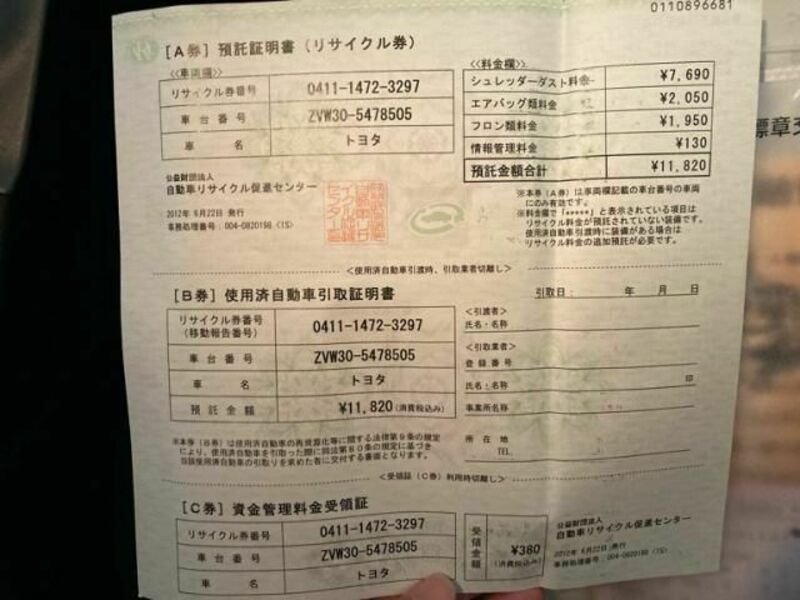 0110896681
[A券] 預託証明書 (リサイクル券)
≪車両欄≫
リサイクル券番号 0411-1472-3297
車台番号 ZVW30-5478505
車名 トヨタ
≪料金欄≫
シュレッダーダスト料金 ¥7,690
エアバッグ類料金 ¥2,050
フロン類料金 ¥1,950
情報管理料金 ¥130
預託金額合計 ¥11,820
公益財団法人
自動車リサイクル促進センター
2012年 6月22日 発行
事務処理番号:004-0820198 (1S)
※本券(A券)は車両欄記載の車台番号の車両
にのみ有効です。
※料金欄で「*****」と表示されている項目は
リサイクル料金が預託されていない装備です。
使用済自動車引渡時に装備がある場合は
リサイクル料金の追加預託が必要です。
<使用済自動車引渡時、引取業者切離し>
[B券] 使用済自動車引取証明書
引取日: 年 月 日
リサイクル券番号
(移動報告番号) 0411-1472-3297
車台番号 ZVW30-5478505
車名 トヨタ
預託金額 ¥11,820(消費税込み)
<引渡者>
氏名・名称
<引取業者>
登録番号
氏名・名称 印
事業所名称
所在地
TEL
※本券(B券)は使用済自動車の再資源化等に関する法律第9条の規定
により、使用済自動車を引取った際に同法第80条の規定に基づき
当該使用済自動車の引取りを求めた者に交付する書面となります。
<受領証(C券)利用時切離し>
[C券] 資金管理料金受領証
リサイクル券番号 0411-1472-3297
車台番号 ZVW30-5478505
車名 トヨタ
受領金額 ¥380
(消費税込み)
公益財団法人
自動車リサイクル促進センター
2012年 6月22日 発行
事務処理番号:004-0820198 (1S)
標章交